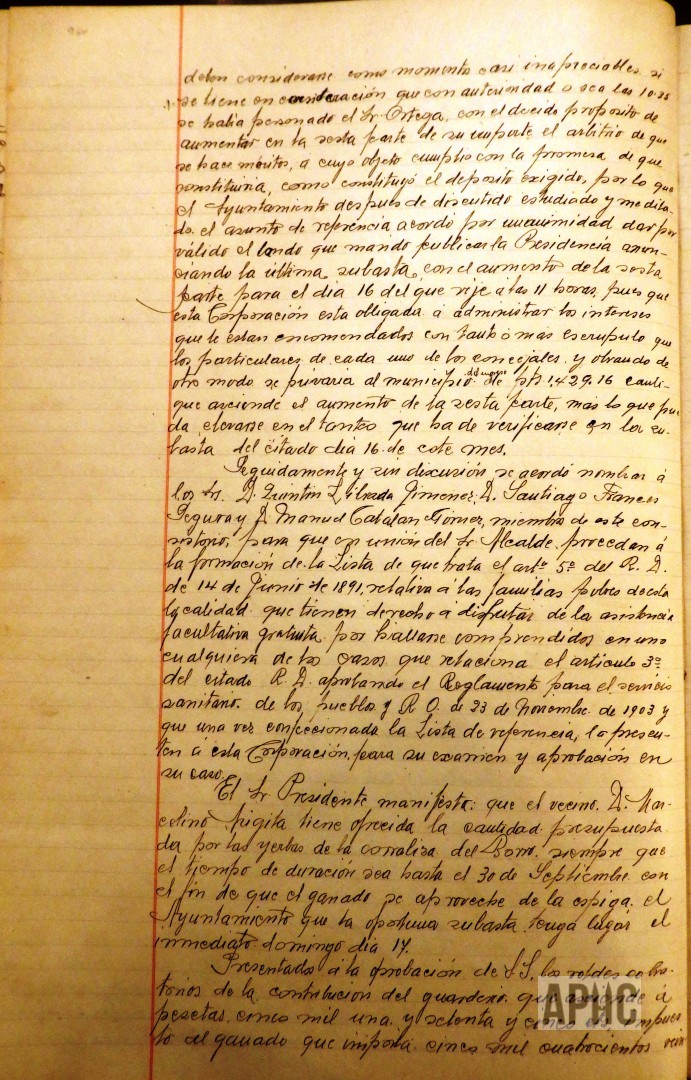 deben considerarse como momento casi inapreciables si
se tiene en consideración que con anterioridad o sea las 10.25
se habia personado el Sr. Ortega, con el decido proposito de
aumentar en la sesta parte de su importe el arbitrio de que
se hace meritos, a cuyo objeto cumplio con la promesa de que
constituiria, como constituyó el deposito exigido, por lo que
el Ayuntamiento despues de discutido estudiado y medita-
do el asunto de referencia acordó por unanimidad dar por
válido el bando que mandó publicar la Presidencia anun-
ciando la última subasta, con el aumento de la sesta
parte para el dia 16 del que rije a las 11 horas, pues que
esta Corporación esta obligada á administrar los intereses
que le estan encomendados con tanto ó mas escrupulo que
los particulares de cada uno de los concejales y obrando de
otro modo se privaria al municipio de pts 1.429,16 canti-
que asciende el aumento de la sesta parte, mas lo que pue-
da elevarse en el tanteo que ha de verificarse en la su-
basta del citado dia 16 de este mes.
Seguidamente y sin discusión se acordó nombrar á
los Srs. D. Quintin Librada Jimenez, D. Santiago Frances
Segura y D Manuel Catalan Gómez, miembros de este con-
sistorio, para que en unión del Sr Alcalde, procedan á
la formación de la Lista de que trata el artº 5º del R. D.
de 14 de Junio de 1891, relativa á las familias pobres de esta
localidad que tienen derecho á disfrutar de la asistencia
facultativa gratuita por hallarse comprendidos en uno
cualquiera de los casos que relaciona el articulo 3º
del citado R. D. aprobando el Reglamento para el servicio
sanitario de los pueblos y R O. de 23 de Noviembre de 1903 y
que una vez confeccionada la Lista de referencia, lo presen-
ten á esta Corporación, para su examen y aprobación en
su caso.
El Sr Presidente manifestó: que el vecino D. Mar-
celino tiene ofrecida la cantidad presupuesta-
da por las yerbas de la corraliza del siempre que
el tiempo de duración sea hasta el 30 de Septiembre con
el fin de que el ganado se aproveche de la espiga. el
Ayuntamiento que la oportuna subasta tenga lugar el
inmediato domingo dia 17.
Presentados á la aprobación de S.S. los roldes cobra-
torios de la contribucion del guarderio, que asciende á
pesetas cinco mil una y setenta y cinco impues-
to al ganado que importa cinco mil cuatrocientos vein
APHC